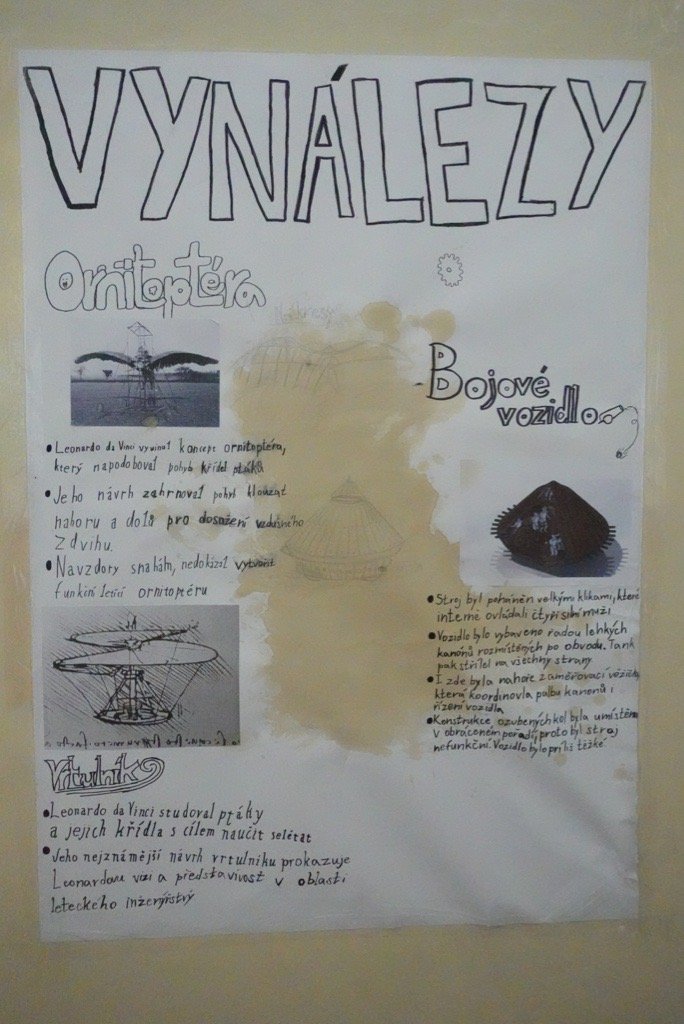 VYNÁLEZY
Ornitoptéra
• Leonardo da Vinci vyvinul koncept ornitoptéra,
který napodoboval pohyb křídel ptáků
• Jeho návrh zahrnoval pohyb klouzat
nahoru a dolů pro dosažení vzdušného
zdvihu.
• Navzdory snahám, nedokázal vytvořit
funkční letící ornitoptéru
Vrtulník
• Leonardo da Vinci studoval ptáky
a jejich křídla s cílem naučit se létat
• Jeho nejznámější návrh vrtulníku prokazuje
Leonardovu vizi a představivost v oblasti
leteckeho inženýrství
Bojové
vozidlo
• Stroj byl poháněn velkými klikami, které
interně ovládali čtyři silní muži
• Vozidlo bylo vybaveno řadou lehkých
kanónů rozmístěných po obvodu. Tank
pak střílel na všechny strany
• I zde byla nahoře zaměřovací věžička
která koordinovla palbu kanonů i
řízení vozidla
• Konstrukce ozubených kol byla umístěna
v obráceném pořadí, proto byl stroj
nefunkční. Vozidlo bylo příliš těžké